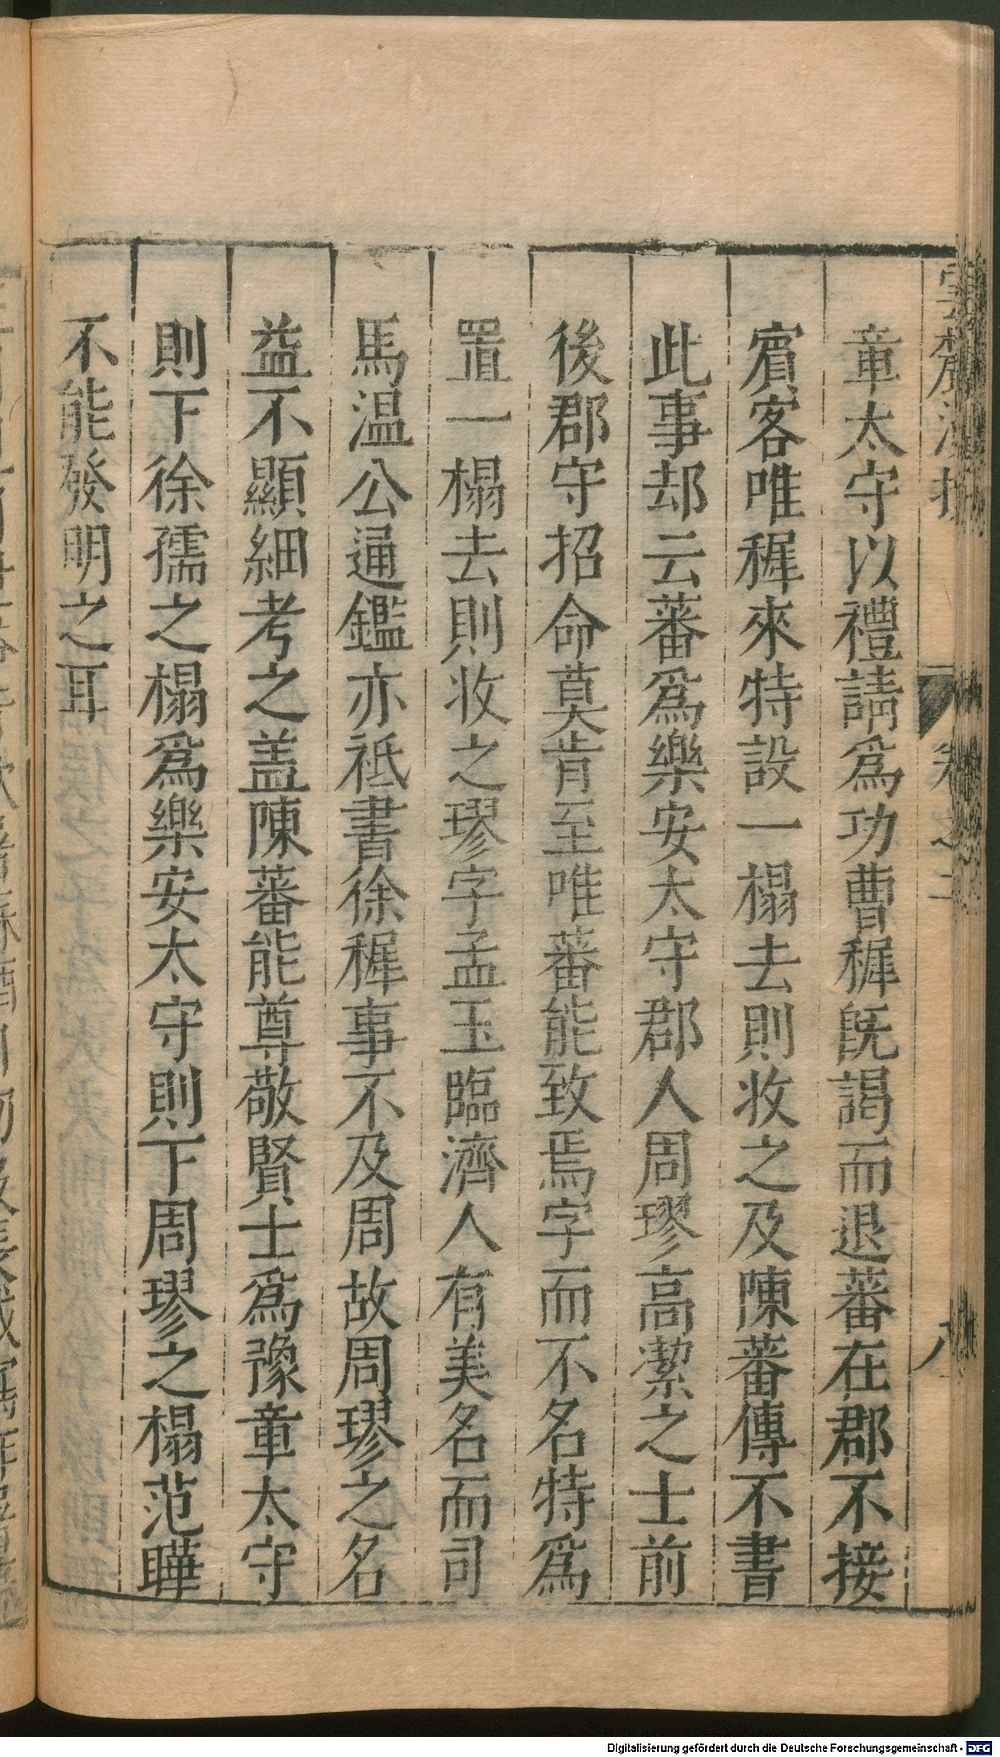 章太守以禮請爲功曹稺旣謁而退蕃在郡不接
賓客唯稺來特設一榻去則收之及陳蕃傳不書
此事却云蕃爲樂安太守郡人周璆高潔之士前
後郡守招命莫肯至唯蕃能致焉字而不名特爲
置一榻去則收之璆字孟玉臨濟人有美名而司
馬温公通鑑亦祗書徐稺事不及周故周璆之名
益不顯細考之盖陳蕃能尊敬賢士爲豫章太守
則下徐孺之榻爲樂安太守則下周璆之榻范曄
不能發明之耳
卷之二
八
Digitalisierung gefördert durch die Deutsche Forschungsgemeinschaft - DFG